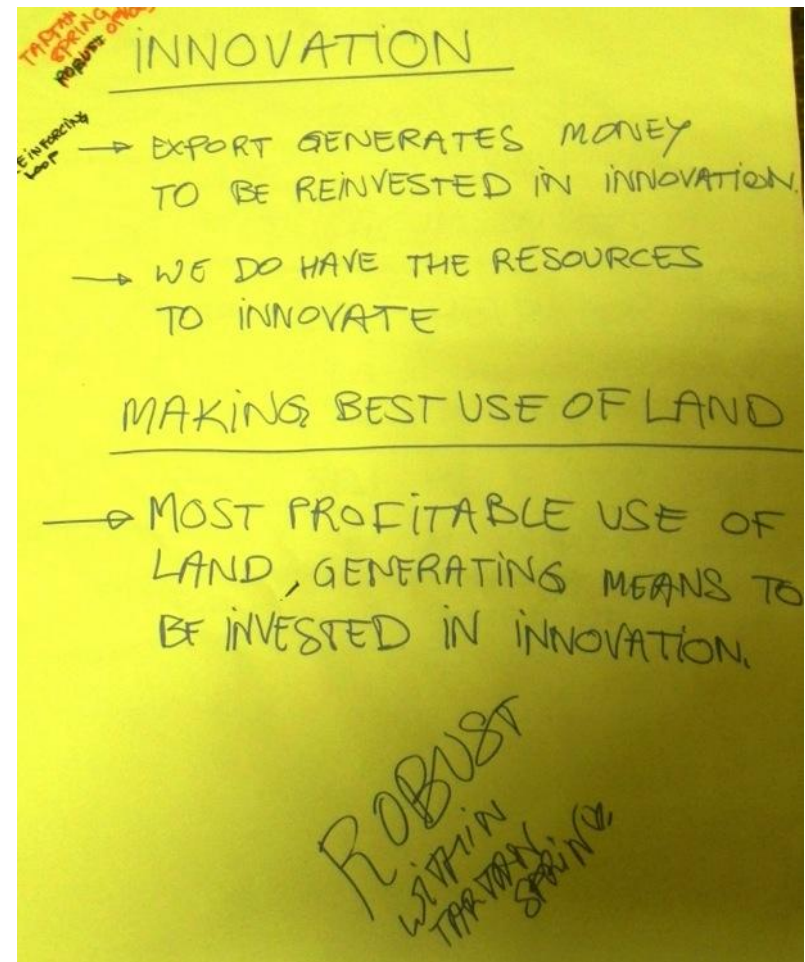 TARTAN
SPRING
ROBUST
INNOVATION
REINFORCING
LOOP
→ EXPORT GENERATES MONEY
TO BE REINVESTED IN INNOVATION.
→ WE DO HAVE THE RESOURCES
TO INNOVATE
MAKING BEST USE OF LAND
→ MOST PROFITABLE USE OF
LAND, GENERATING MEANS TO
BE INVESTED IN INNOVATION.
ROBUST
WITHIN
TARTAN
SPRING